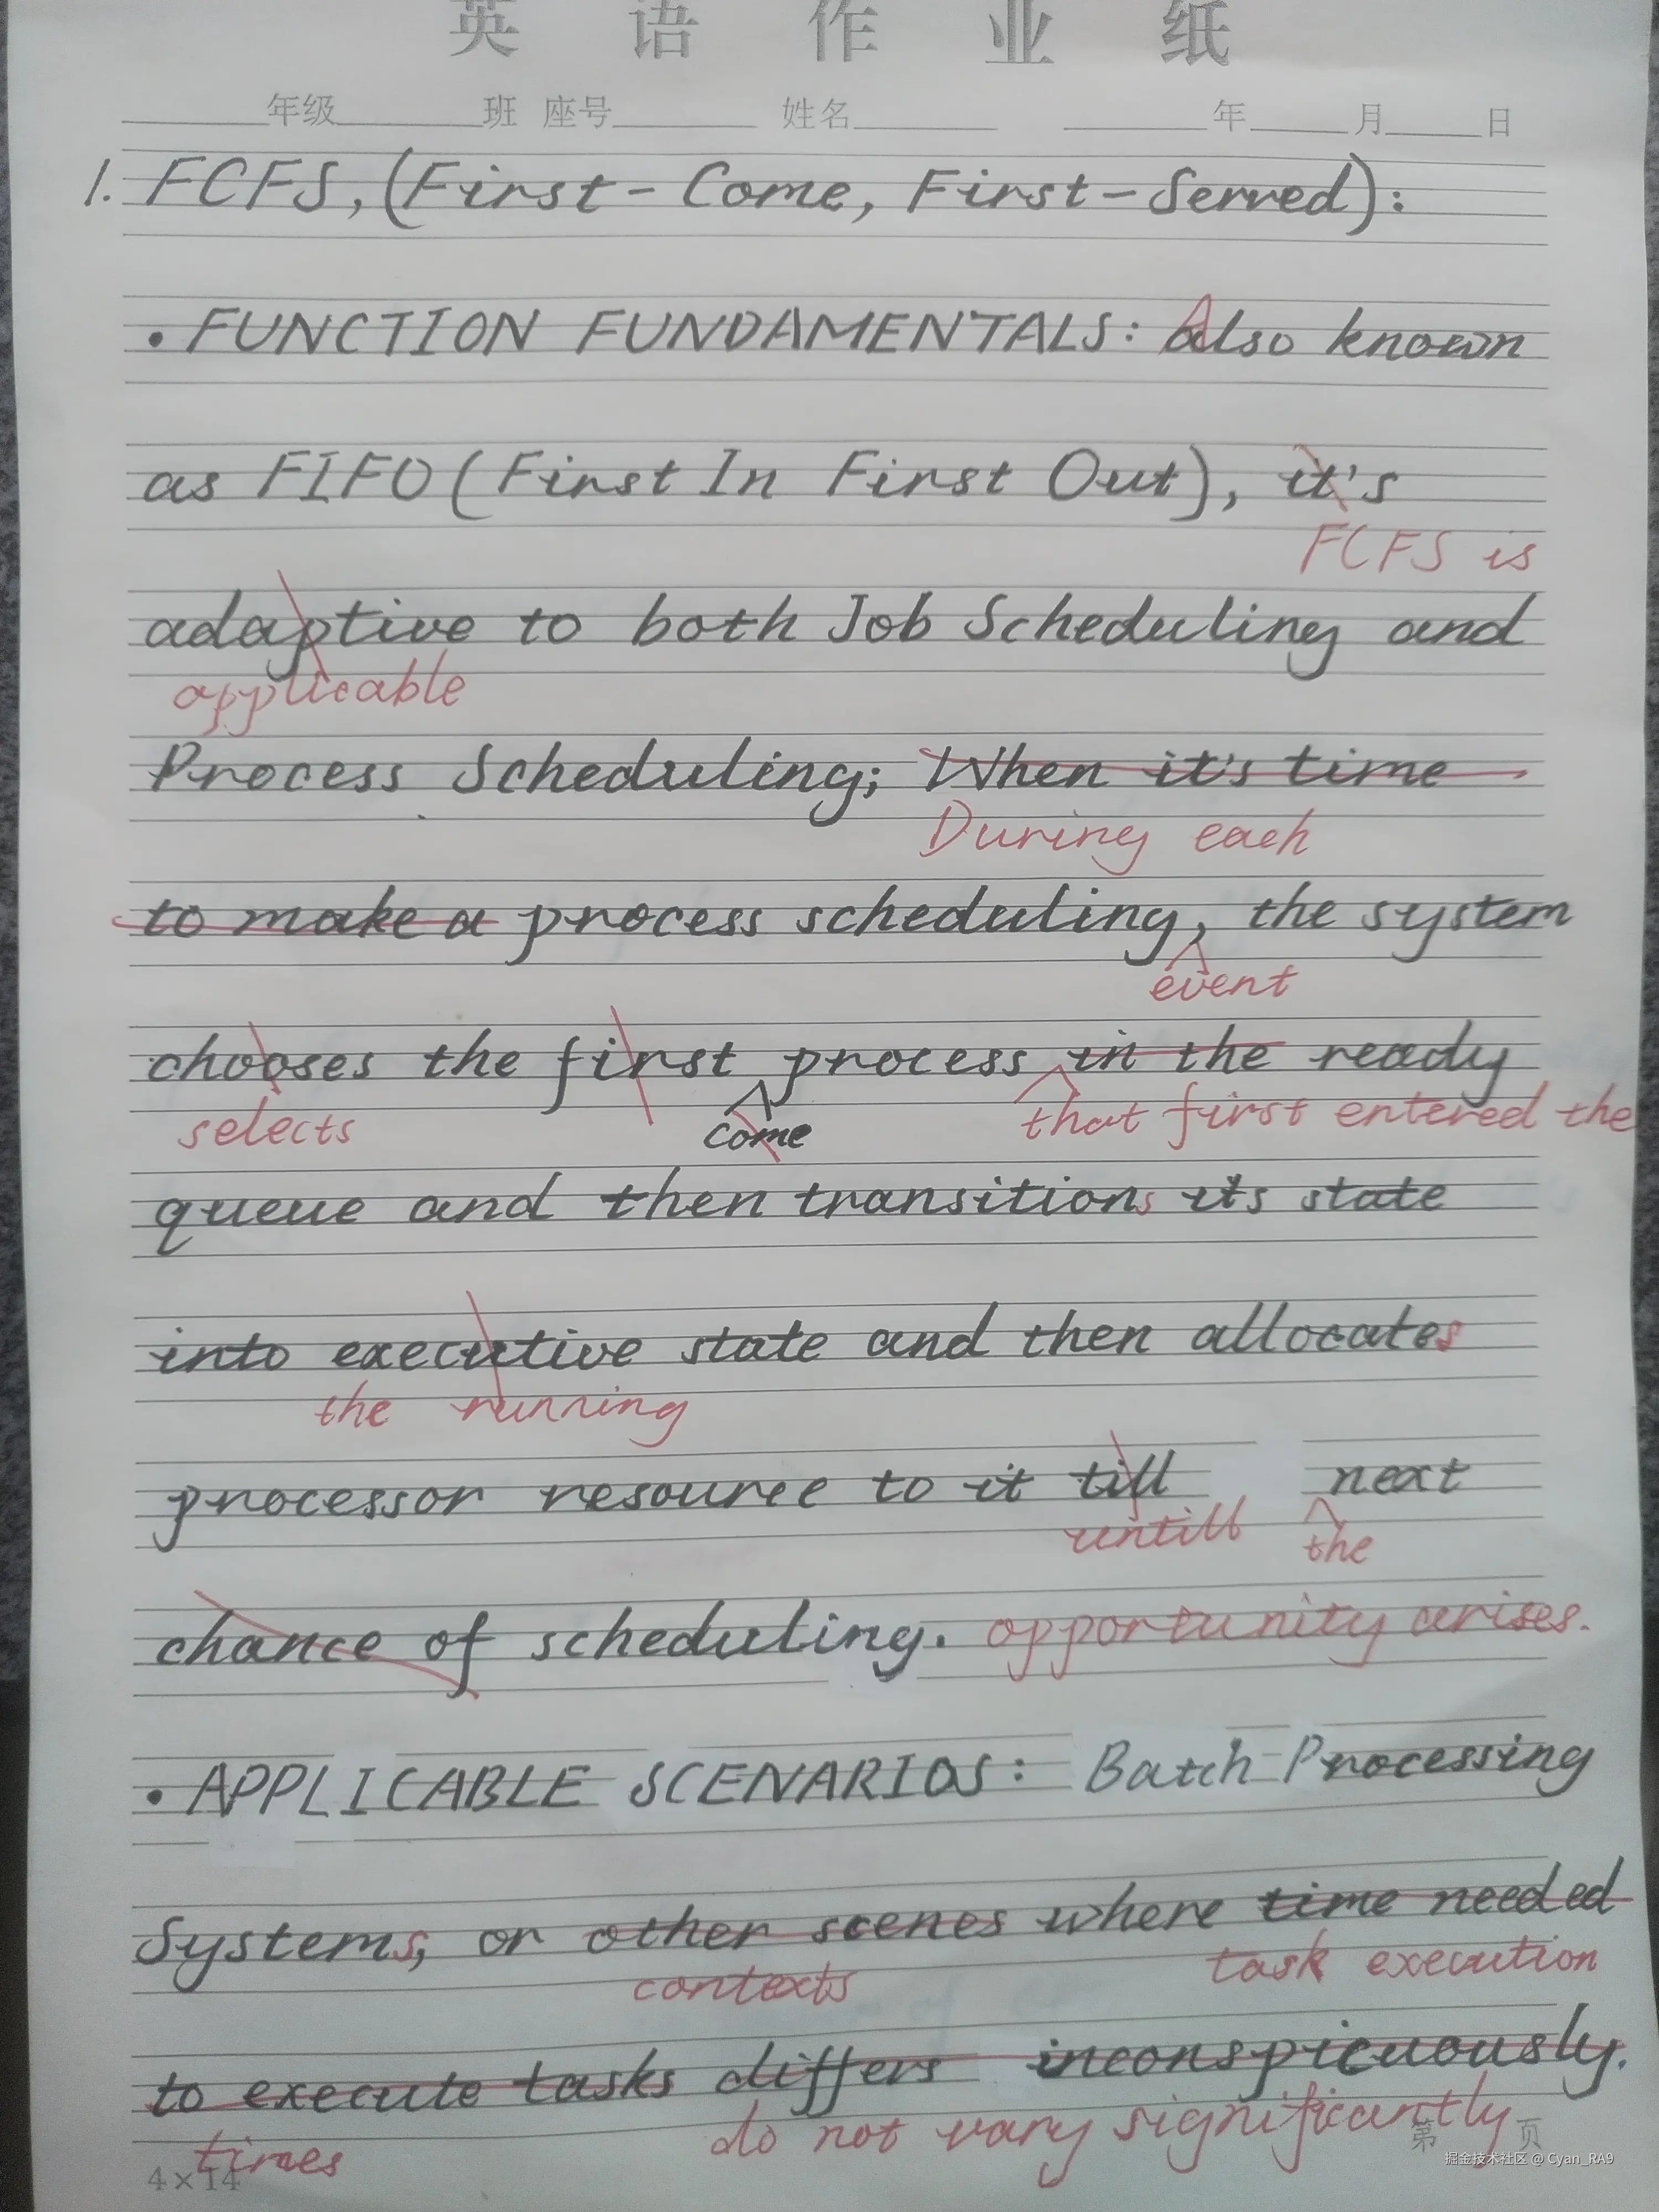 英语作业纸
年级 班 座号 姓名 年 月 日
1. FCFS, (First-Come, First-Served):
• FUNCTION FUNDAMENTALS: Also known
as FIFO (First In First Out), it's
FCFS is
adaptive to both Job Scheduling and
applicable
Process Scheduling; When it's time
During each
to make a process scheduling, the system
event
chooses the first process in the ready
selects come that first entered the
queue and then transitions its state
into executive state and then allocates
the running
processor resource to it till next
untill the
chance of scheduling. opportunity arises.
• APPLICABLE SCENARIOS: Batch-Processing
Systems, or other scenes where time needed
contexts task execution
to execute tasks differs inconspicuously.
times do not vary significantly
4×14 第 页
掘金技术社区 @ Cyan_RA9